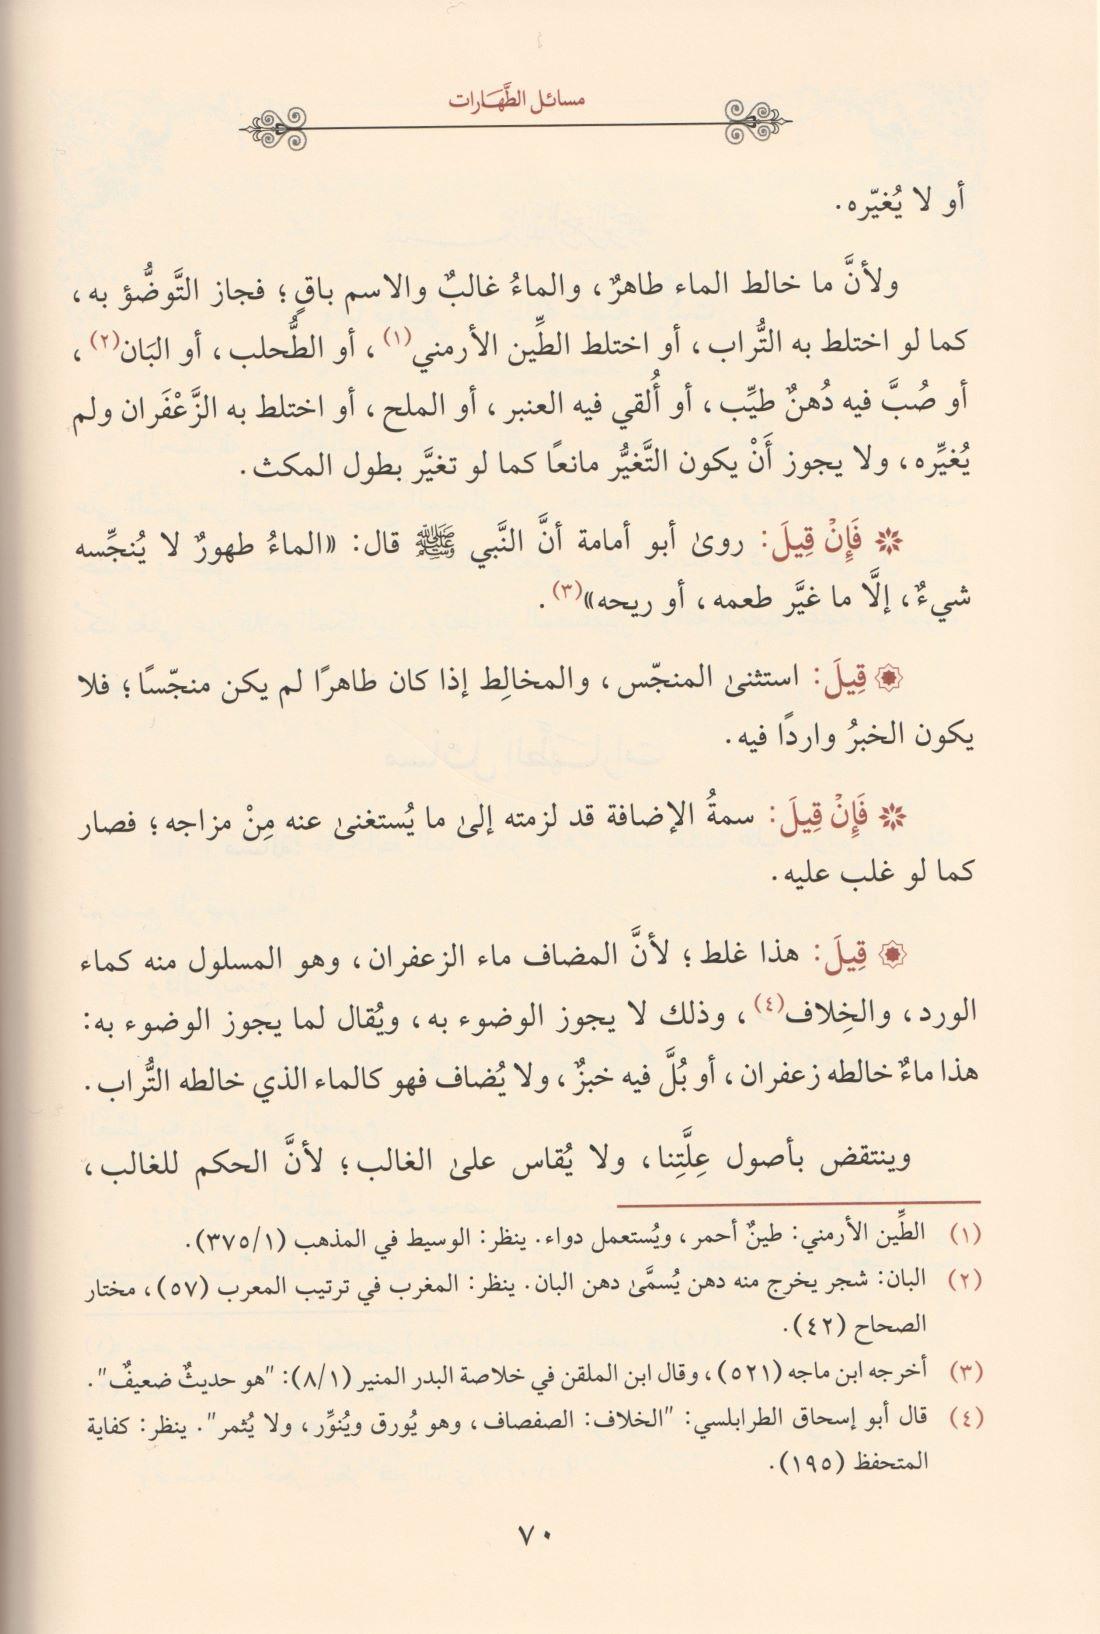 مسائل الطَّهَارات
أو لا يُغيّره.
ولأنَّ ما خالط الماء طاهرٌ، والماءُ غالبٌ والاسم باقٍ؛ فجاز التَّوضُّؤ به،
كما لو اختلط به التُّراب، أو اختلط الطِّين الأرمني(١)، أو الطُّحلب، أو البَان(٢)،
أو صُبَّ فيه دُهنٌ طيِّب، أو أُلقي فيه العنبر، أو الملح، أو اختلط به الزَّعْفَران ولم
يُغيِّره، ولا يجوز أَنْ يكون التَّغيُّر مانعًا كما لو تغيَّر بطول المكث.
فَإِنْ قِيلَ: روىٰ أبو أمامة أنَّ النَّبي ﷺ قال: «الماءُ طهورٌ لا يُنجِّسه
شيءٌ، إلَّا ما غيَّر طعمه، أو ريحه»(٣).
قِيلَ: استثنىٰ المنجّس، والمخالِط إذا كان طاهرًا لم يكن منجّسًا؛ فلا
يكون الخبرُ واردًا فيه.
فَإِنْ قِيلَ: سمةُ الإضافة قد لزمته إلىٰ ما يُستغنىٰ عنه مِنْ مزاجه؛ فصار
كما لو غلب عليه.
قِيلَ: هذا غلط؛ لأنَّ المضاف ماء الزعفران، وهو المسلول منه كماء
الورد، والخِلاف(٤)، وذلك لا يجوز الوضوء به، ويُقال لما يجوز الوضوء به:
هذا ماءٌ خالطه زعفران، أو بُلَّ فيه خبزٌ، ولا يُضاف فهو كالماء الذي خالطه التُّراب.
وينتقض بأصول عِلَّتِنا، ولا يُقاس علىٰ الغالب؛ لأنَّ الحكم للغالب،
(١) الطِّين الأرمني: طينٌ أحمر، ويُستعمل دواء. ينظر: الوسيط في المذهب (٣٧٥/١).
(٢) البان: شجر يخرج منه دهن يُسمَّىٰ دهن البان. ينظر: المغرب في ترتيب المعرب (٥٧)، مختار
الصحاح (٤٢).
(٣) أخرجه ابن ماجه (٥٢١)، وقال ابن الملقن في خلاصة البدر المنير (٨/١): "هو حديثٌ ضعيفٌ".
(٤) قال أبو إسحاق الطرابلسي: "الخلاف: الصفصاف، وهو يُورق ويُنوِّر، ولا يُثمر". ينظر: كفاية
المتحفظ (١٩٥).
٧٠